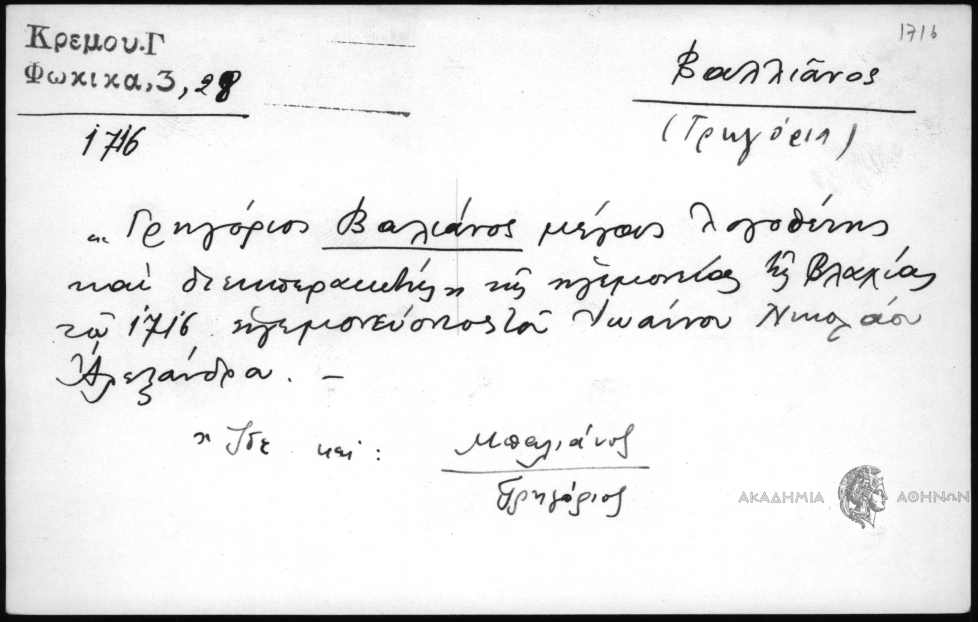 1716
Κρεμου.Γ
Φωκικα,3,28
1716
Βαλλιᾶνος
(Γρηγόρις)
"Γρηγόριος Βαλιάνος μέγας Λογοθέτης
καὶ διεκπεραιωτής" τῆς ἡγεμονίας τῆς Βλαχίας
τῷ 1716 ἡγεμονεύοντος τοῦ Ἰωάννου Νικολάου
Ἀλεξάνδρα. –
" Ἴδε καὶ : Μπαλιάνος
Γρηγόριος
ΑΚΑΔΗΜΙΑ ΑΘΗΝΩΝ